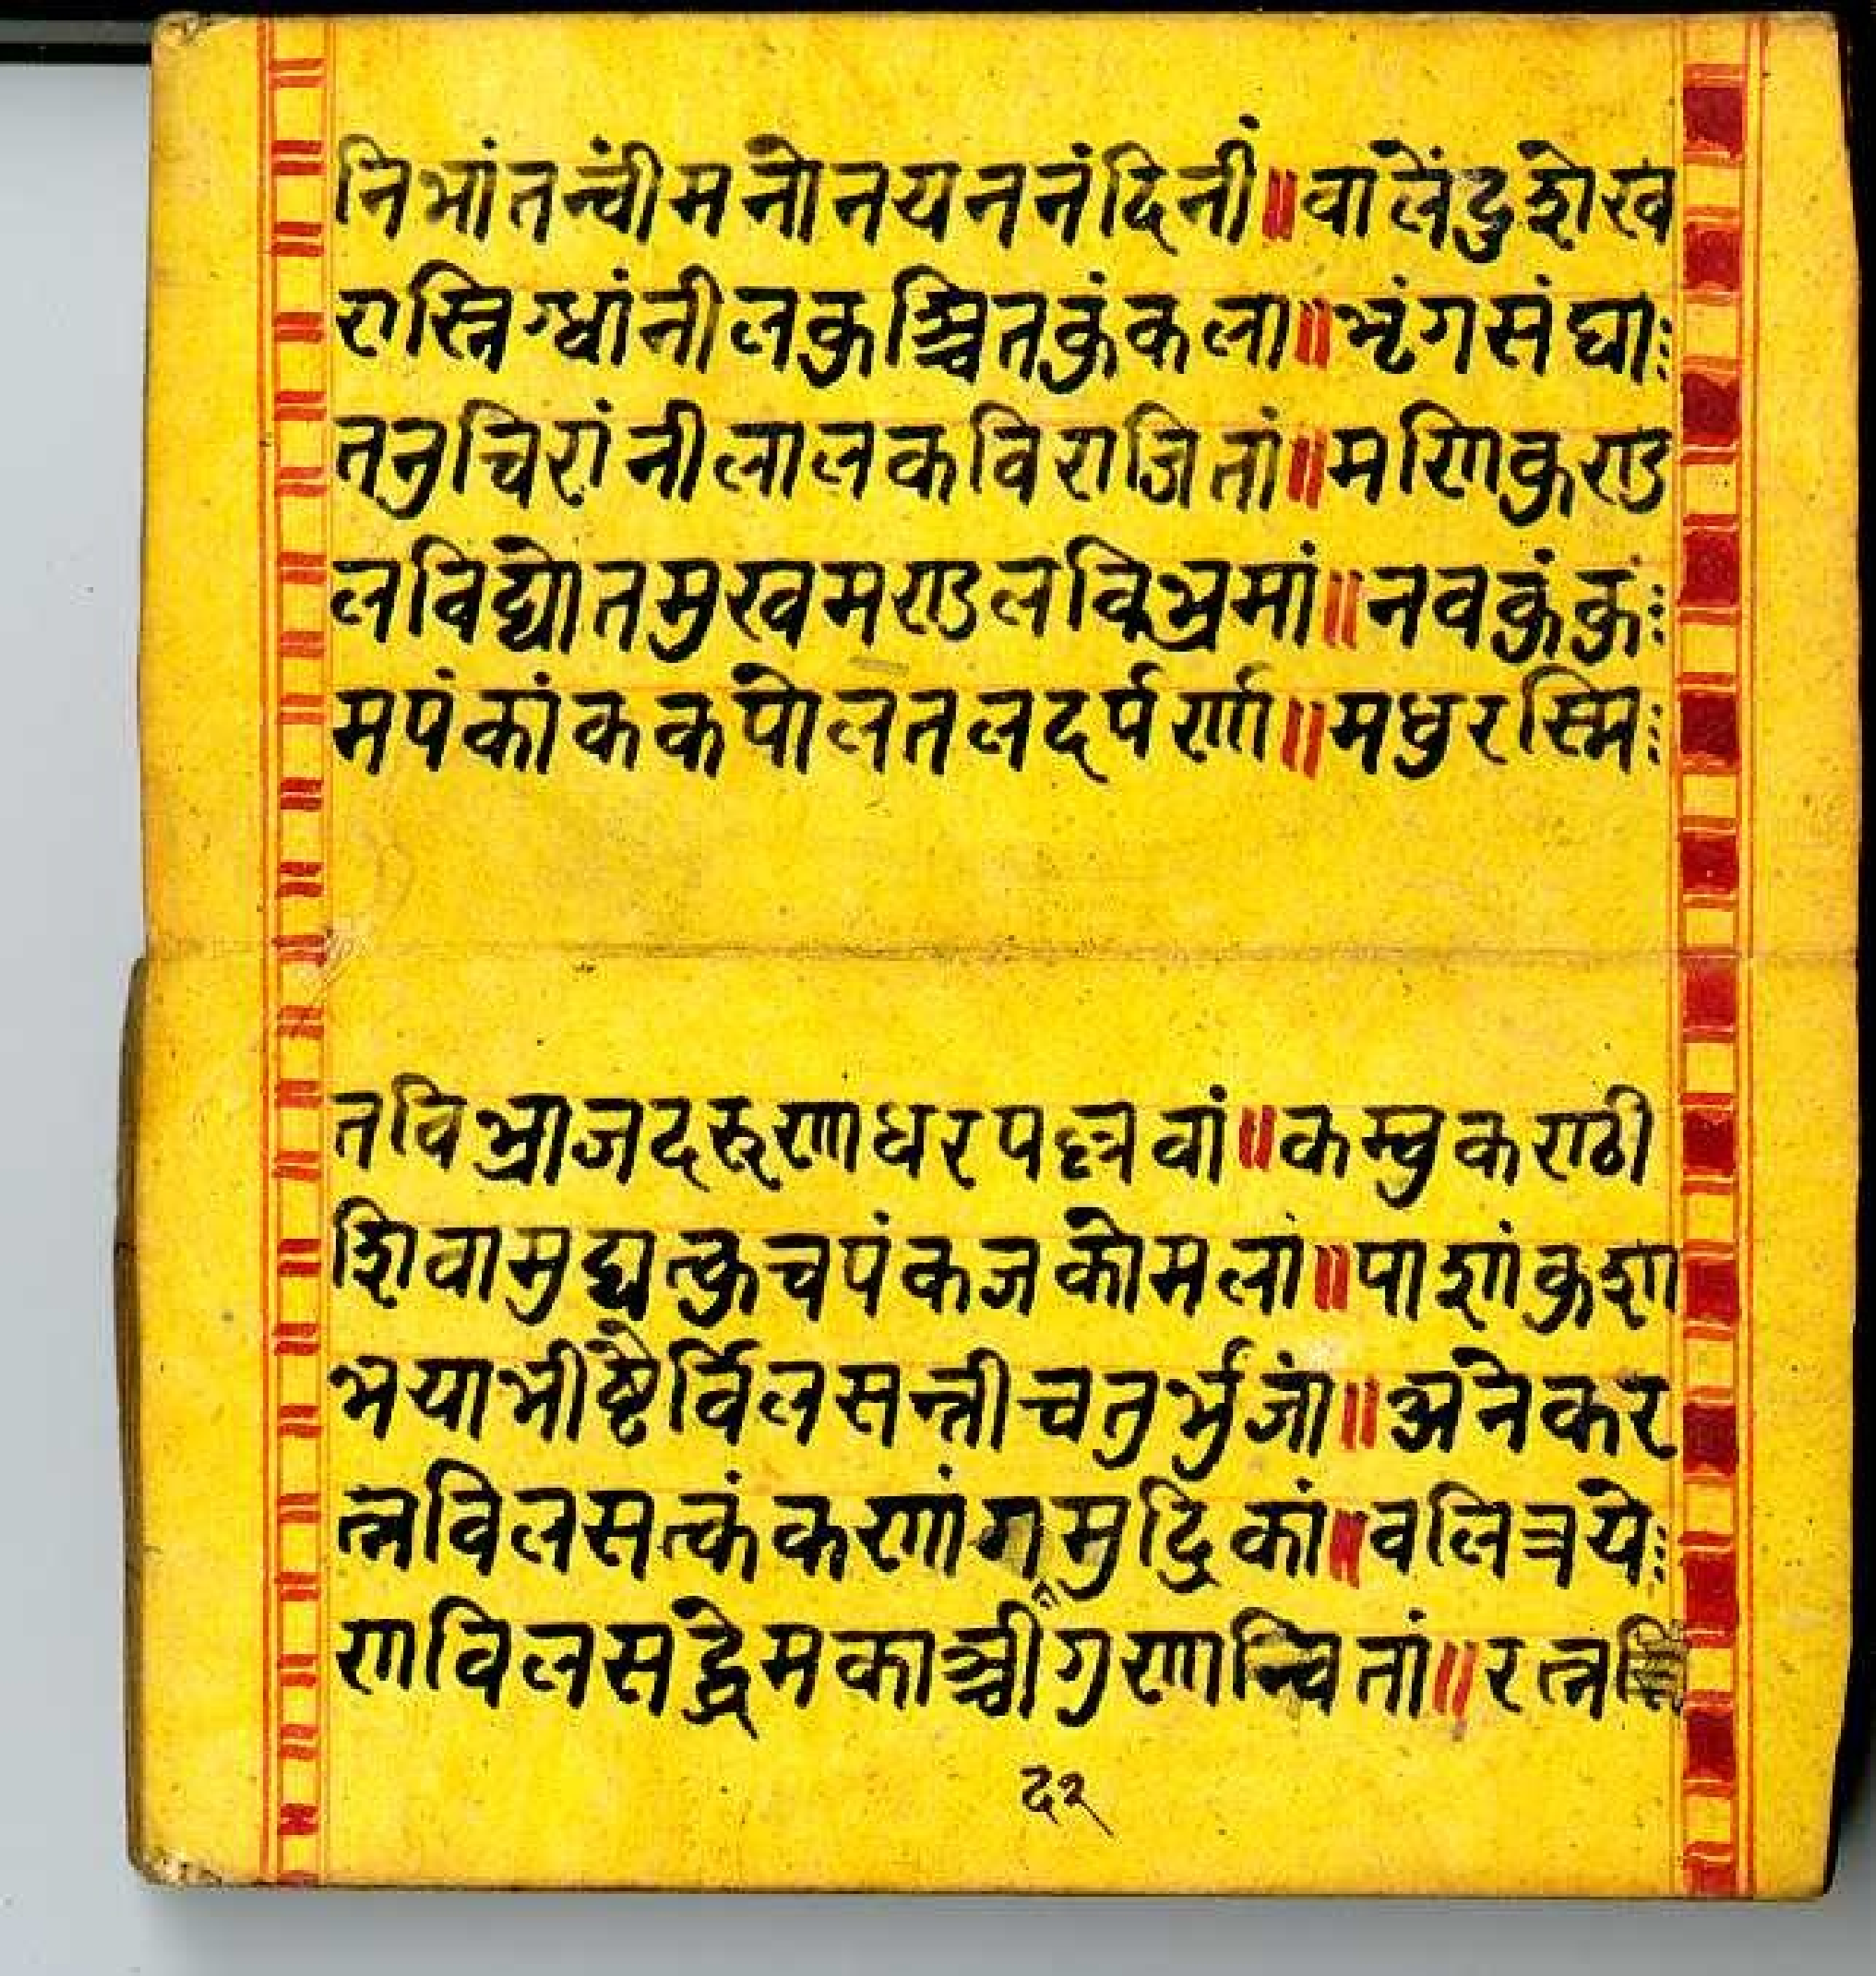 निभांतन्वीं मनोनयननंदिनीं॥वालेंदुशेख
रास्निग्धां नीलकुञ्चितकुंकला॥भृंगसंघाः
तनुचिरां नीलालकविराजितां॥मणिकुण्ड
लविद्योतमुखमण्डलविभ्रमां॥नवकुंकुः
मपंकांककपोलतलदर्पणां॥मधुरस्मिः
तविभ्राजदरुणाधरपल्लवां॥कम्बुकण्ठी
शिवामुद्यत्कुचपंकजकोमलां॥पाशांकुशा
भयाभीष्टैर्विलसन्तीचतुर्भुजां॥अनेकर
त्नविलसत्कंकणांगमुद्रिकां॥वलित्रयेः
णविलसद्धेमकाञ्चीगुणान्वितां॥रत्न
६२